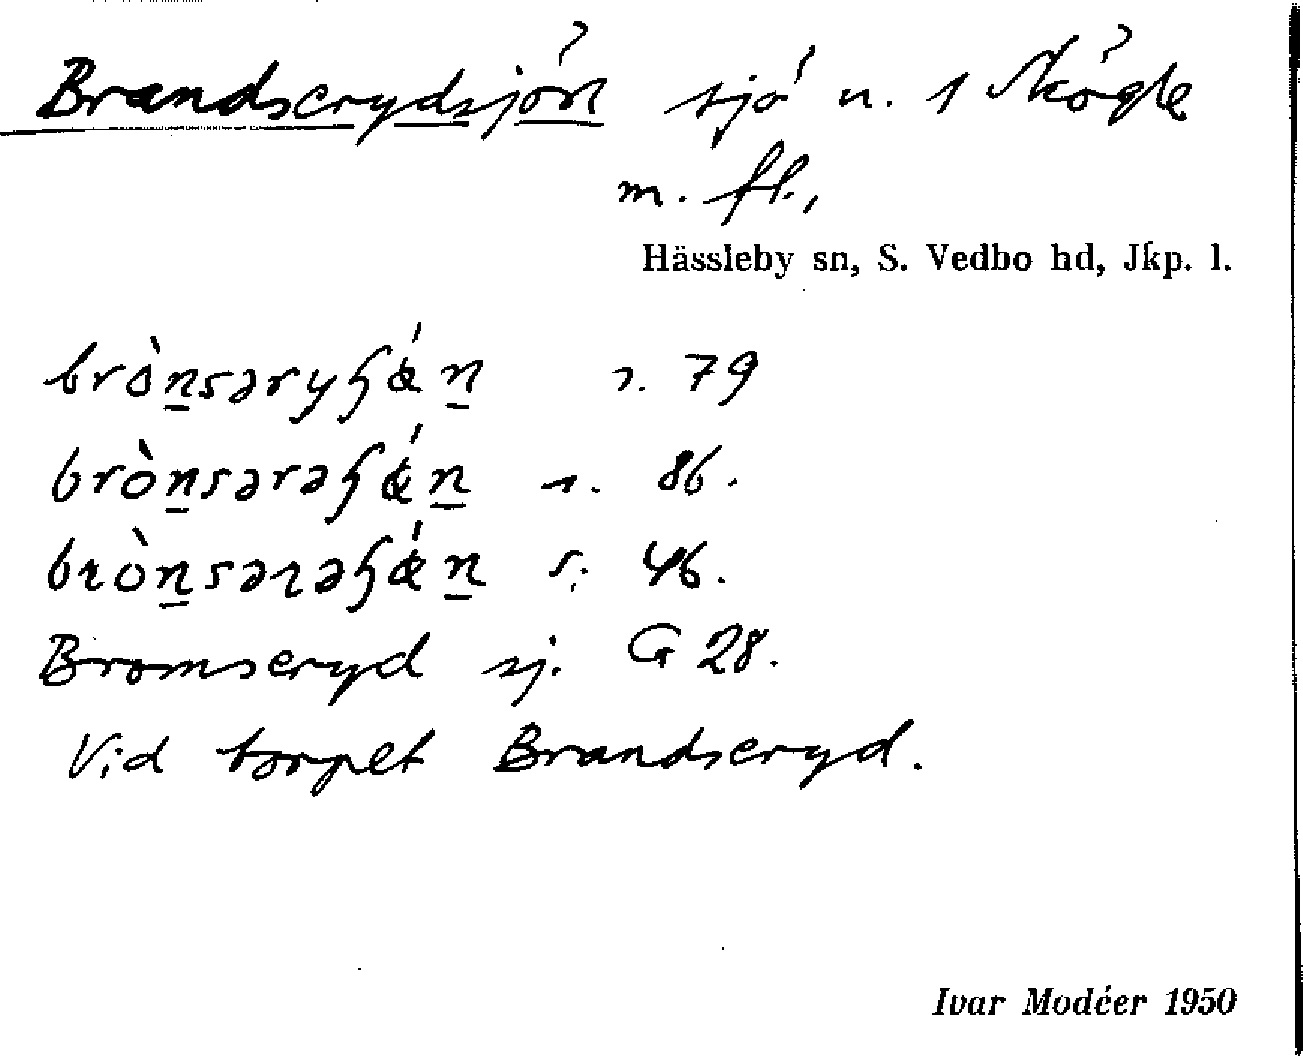 Brandserydsjön sjö u. 1 Skögle
m. fl.,
Hässleby sn, S. Vedbo hd, Jkp. l.
brò̱nsəryɧǽṉ s. 79
bròṉsərəɧǽṉ s. 86.
bròṉsərəɧǽṉ s. 46.
Bromseryd sj. G 28.
Vid torpet Brandseryd.
Ivar Modéer 1950